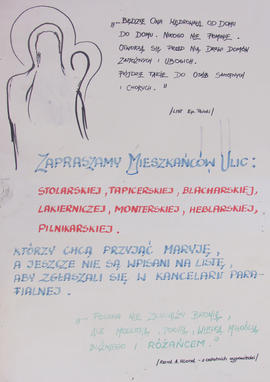 "...BĘDZIE ONA WĘDROWAŁ OD DOMU
DO DOMU. NIKOGO NIE POMINIE.
OTWORZĄ SIĘ PRZED NIĄ DRZWI DOMÓW
ZAMOŻNYCH I UBOGICH.
PÓJDZIE TAKŻE DO OSÓB SAMOTNYCH
I CHORYCH."
/LIST Ep. Polski/
ZAPRASZAMY MIESZKAŃCÓW ULIC:
STOLARSKIEJ, TAPICERSKIEJ, BLACHARSKIEJ,
LAKIERNICZEJ, MONTERSKIEJ, HEBLARSKIEJ,
PILNIKARSKIEJ.
KTÓRZY CHCĄ PRZYJĄĆ MARYJĘ,
A JESZCZE NIE SĄ WPISANI NA LISTĘ,
ABY ZGŁASZALI SIĘ W KANCELARII PARA-
FIALNEJ.
"POLSKA NIE ZWYCIĘŻY BRONIĄ,
ALE MODLITWĄ, POKUTĄ, WIELKĄ MIŁOŚCIĄ
BLIŹNIEGO I RÓŻAŃCEM."
/Kard. A. Hlond - z ostatnich wypowiedzi/